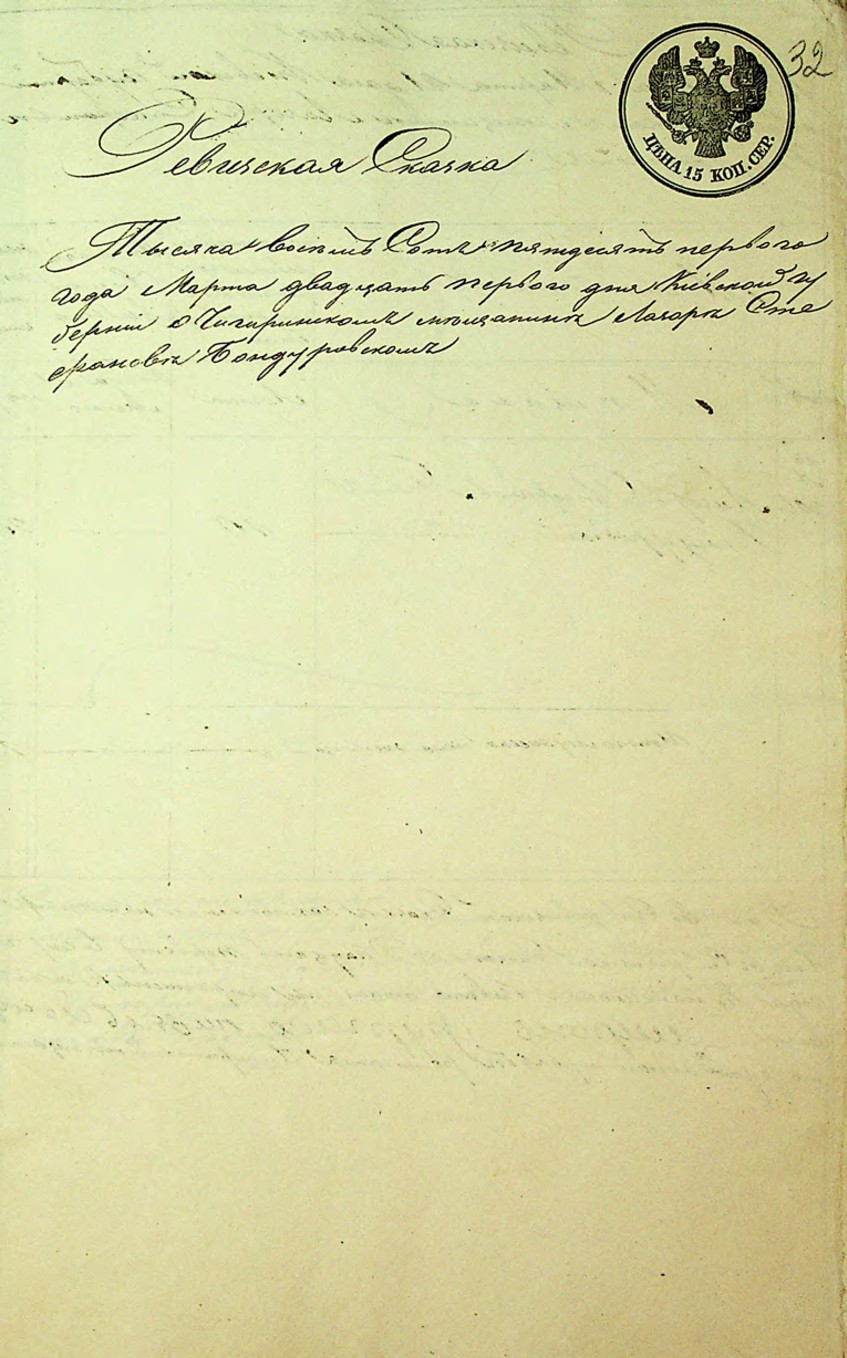 32
ЦѢНА 15 КОП. СЕР.
Ревизская Сказка
Тысяча восемь Сотъ пятдесятъ первого
года Марта двадцать первого дня Кіевской гу
берніи о Чигиринскомъ мѣщанинѣ Лазарѣ Сте
фановѣ Бондуровскомъ